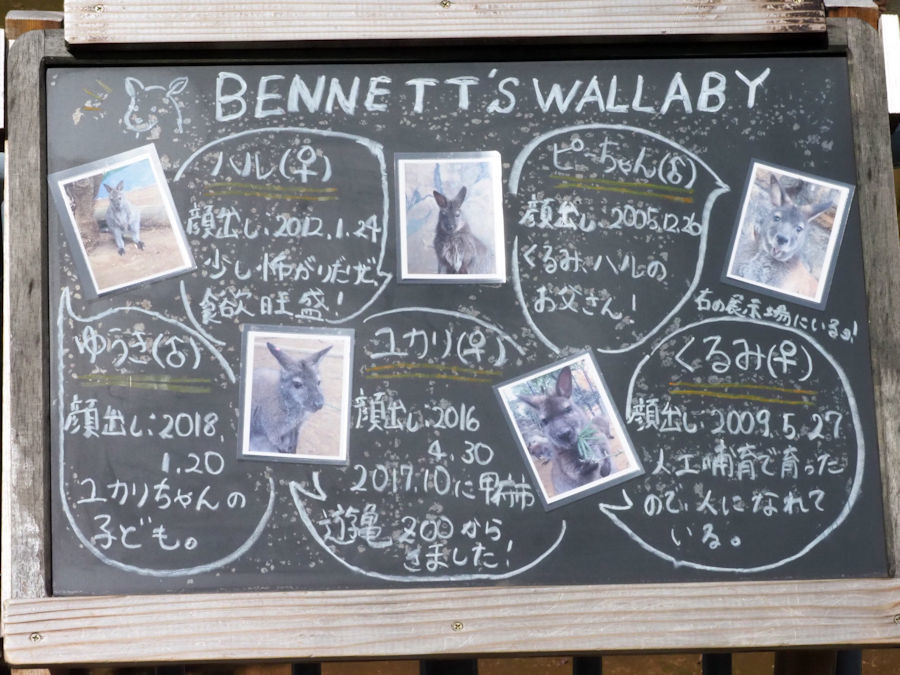 BENNETT'S WALLABY
ハル(♀)
顔出し:2012.1.24
少し怖がりだが、
食欲旺盛!
ピーちゃん(♂)
顔出し:2005.12.26
くるみ、ハルの
お父さん!
右の展示場にいるよ!
ゆうき(♂)
顔出し:2018.
1.20
ユカリちゃんの
子ども。
ユカリ(♀)
顔出し:2016
4.30
2017.10に甲府市
遊亀ZOOから
きました!
くるみ(♀)
顔出し:2009.5.27
人工哺育で育った
ので、人になれて
いる。